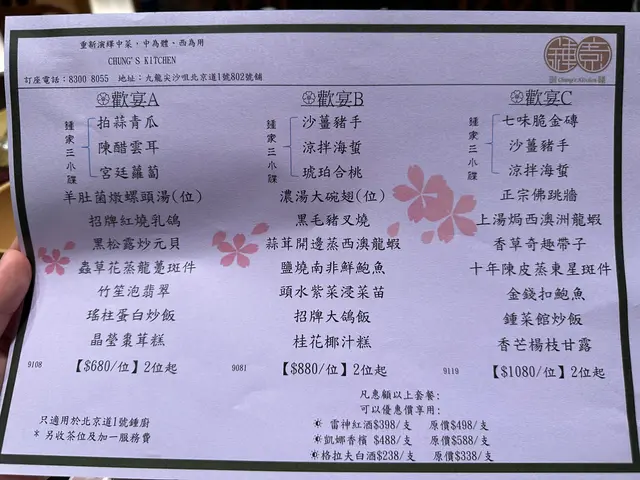 重新演繹中菜，中為體、西為用
CHUNG'S KITCHEN
訂座電話：8300 8055 地址：九龍尖沙咀北京道1號802號舖
Chung's Kitchen
歡宴A
鍾家三小碟
拍蒜青瓜
陳醋雲耳
宮廷蘿蔔
羊肚菌燉螺頭湯(位)
招牌紅燒乳鴿
黑松露炒元貝
蟲草花蒸龍躉斑件
竹笙泡翡翠
瑤柱蛋白炒飯
晶瑩棗茸糕
9108
【$680/位】2位起
歡宴B
鍾家三小碟
沙薑豬手
涼拌海蜇
琥珀合桃
濃湯大碗翅(位)
黑毛豬叉燒
蒜茸開邊蒸西澳龍蝦
鹽燒南非鮮鮑魚
頭水紫菜浸菜苗
招牌大鴿飯
桂花椰汁糕
9081
【$880/位】2位起
歡宴C
鍾家三小碟
七味脆金磚
沙薑豬手
涼拌海蜇
正宗佛跳牆
上湯焗西澳洲龍蝦
香草奇趣帶子
十年陳皮蒸東星斑件
金錢扣鮑魚
鍾菜館炒飯
香芒楊枝甘露
9119
【$1080/位】2位起
只適用於北京道1號鍾廚
* 另收茶位及加一服務費
凡惠顧以上套餐：
可以優惠價享用：
雷神紅酒$398/支 原價$498/支
凱娜香檳 $488/支 原價$588/支
格拉夫白酒$238/支 原價$338/支